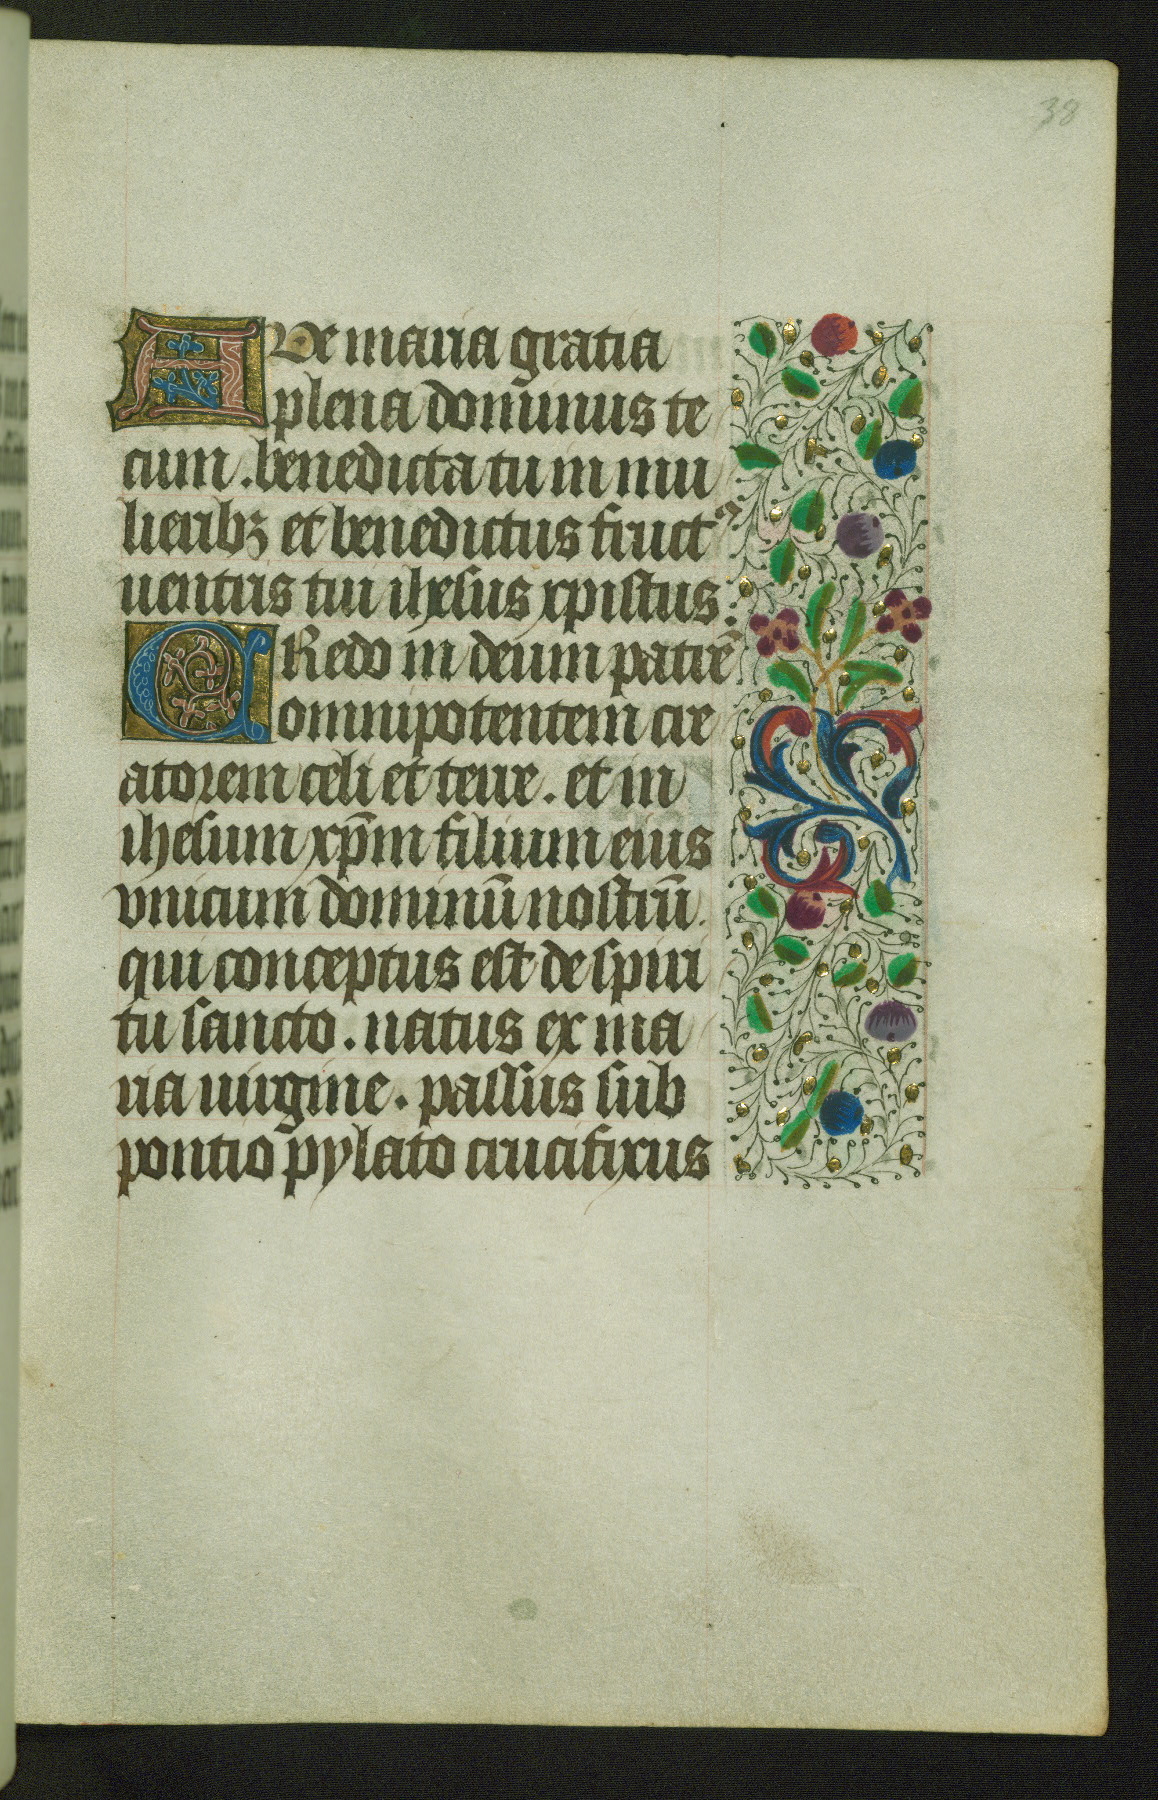 38
AVe maria gratia
plena dominus te
cum. benedicta tu in mu
lieribꝫ et benedictus fruct᷒
uentris tui ihesus xpistus:
CRedo in deum patrē
omnipotentem cre
atorem celi et terre. et in
ihesum xp̄m filium eius
vnicum dominū nostrū.
qui conceptus est de spiri
tu sancto. natus ex ma
ria uirgine. passus sub
pontio pylato crucifixus